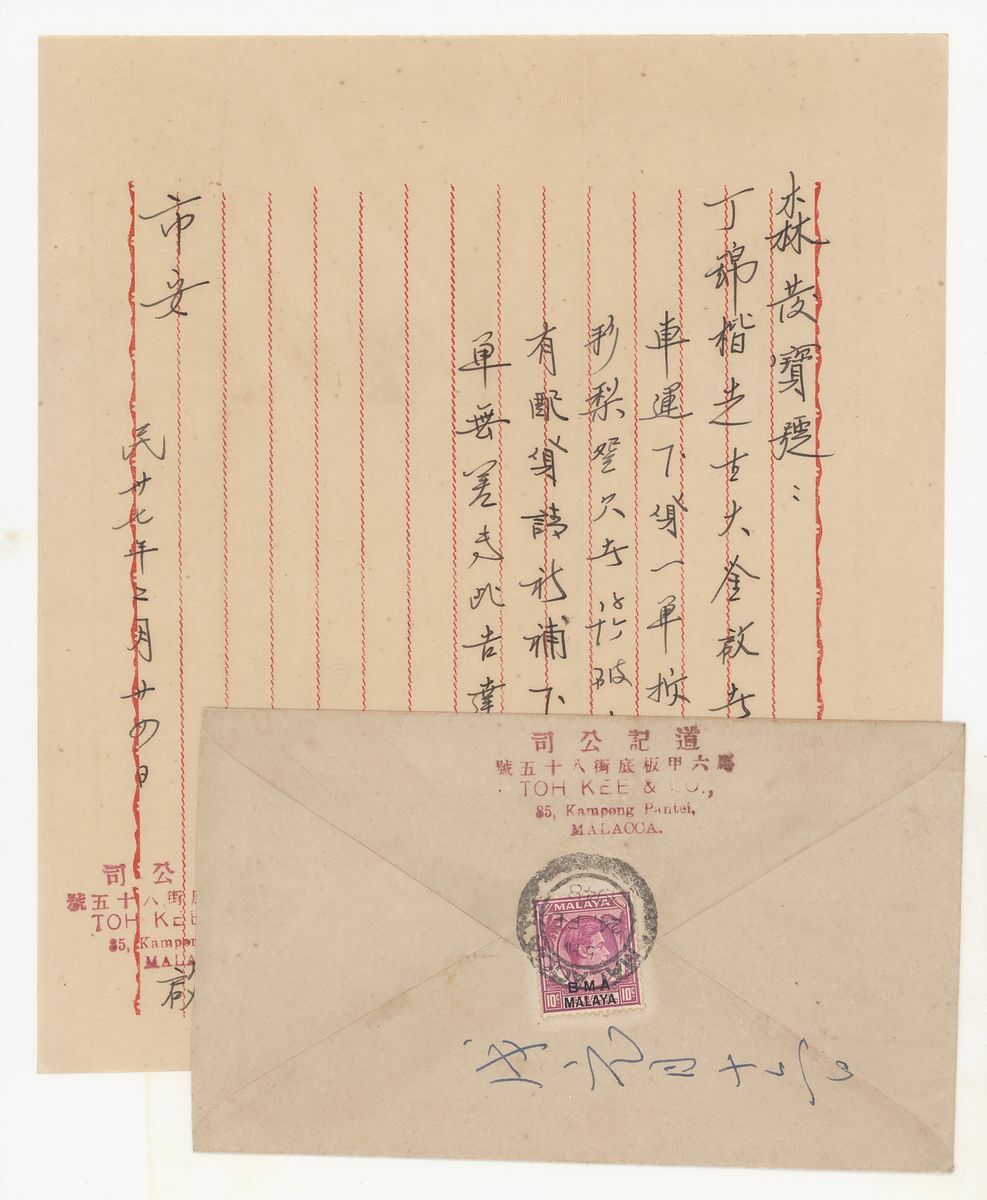 森茂寶號：
丁錦楷先生大鉴啟者
車運下貨一單
有配貨請祈補下
單無差専此告達
市安
民卅七年二月廿四日
公司
街八十五號
TOH KEE
85, Kampon
MALA
啟
道記公司
馬六甲板底街八十五號
TOH KEE & CO.,
85, Kampong Pantei,
MALACCA.
MALAYA
BMA
MALAYA
10c 10c